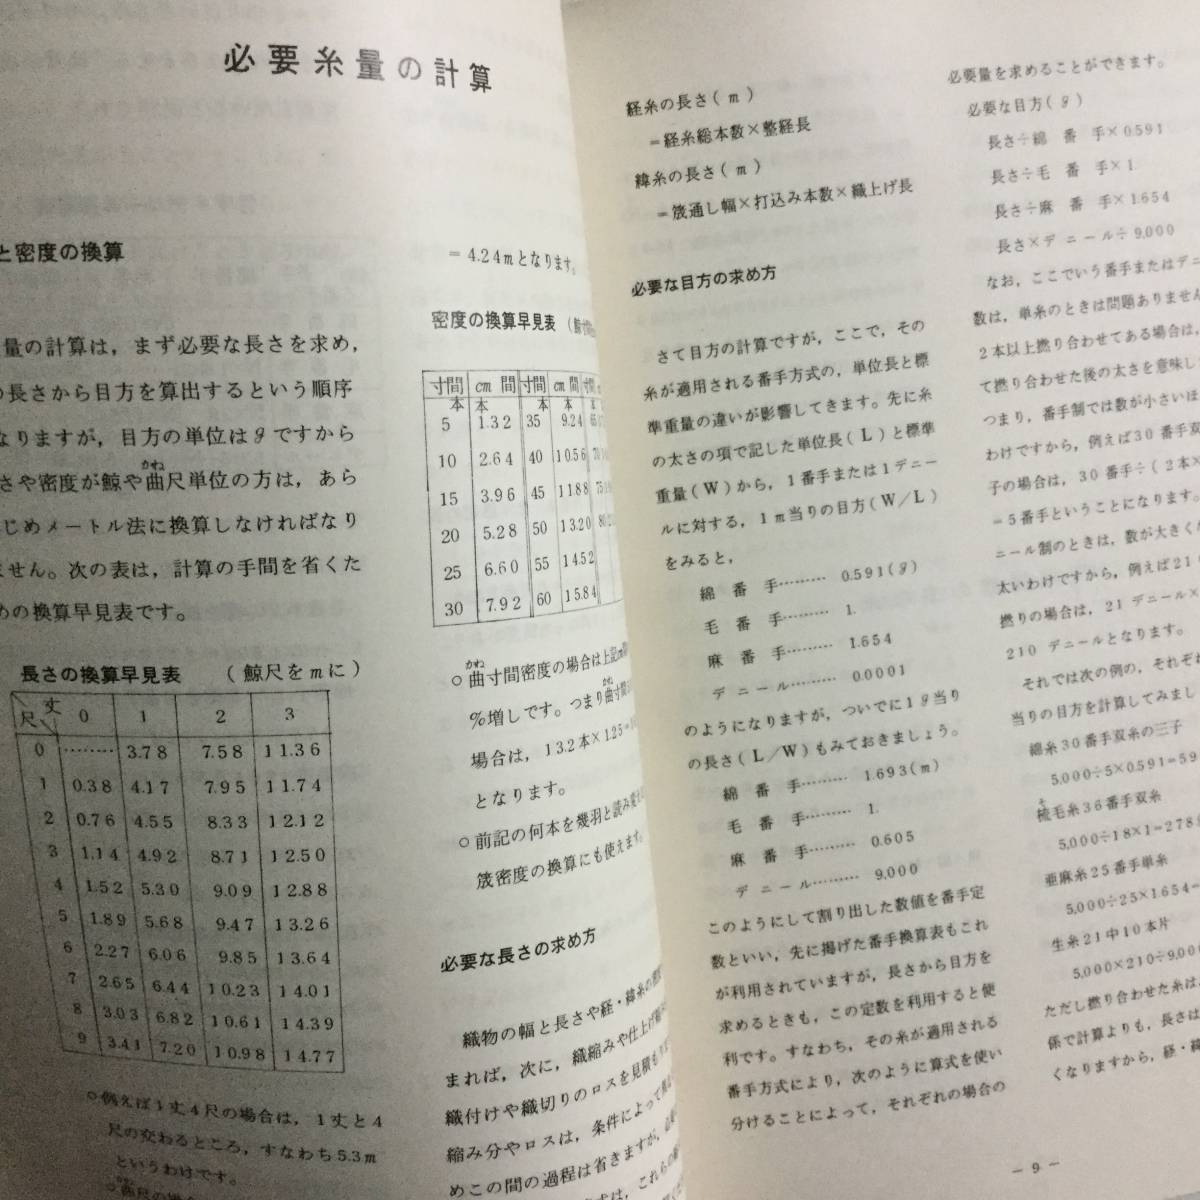 必要糸量の計算
と密度の換算
量の計算は，まず必要な長さを求め，
の長さから目方を算出するという順序
なりますが，目方の単位はgですから
さや密度が鯨や曲尺単位の方は，あら
かね
じめメートル法に換算しなければなり
ません。次の表は，計算の手間を省くた
めの換算早見表です。
長さの換算早見表 （鯨尺をmに）
尺 丈 0 1 2 3
0 ……… 3.78 7.58 11.36
1 0.38 4.17 7.95 11.74
2 0.76 4.55 8.33 12.12
3 1.14 4.92 8.71 12.50
4 1.52 5.30 9.09 12.88
5 1.89 5.68 9.47 13.26
6 2.27 6.06 9.85 13.64
7 2.65 6.44 10.23 14.01
8 3.03 6.82 10.61 14.39
9 3.41 7.20 10.98 14.77
○例えば1丈4尺の場合は，1丈と4
尺の交わるところ，すなわち5.3m
というわけです。
＝4.24mとなります。
密度の換算早見表
寸間 cm間 寸間 cm間 寸間
本 本 本 本 本
5 1.32 35 9.24 65
10 2.64 40 10.56 70
15 3.96 45 11.88 75
20 5.28 50 13.20 80
25 6.60 55 14.52
30 7.92 60 15.84
かね
○曲寸間密度の場合は上記
%増しです。つまり曲寸間
かね
場合は，13.2本×1.25＝
となります。
○前記の何本を幾羽と読み変え
筬密度の換算にも使えます。
必要な長さの求め方
織物の幅と長さや経・緯糸の密度
まれば，次に，織縮みや仕上げ幅
織付けや織切りのロスを見積も
縮み分やロスは，条件によって
めこの間の過程は省きますが，
経糸の長さ(m)
＝経糸総本数×整経長
緯糸の長さ(m)
＝筬通し幅×打込み本数×織上げ長
必要な目方の求め方
さて目方の計算ですが，ここで，その
糸が適用される番手方式の，単位長と標
準重量の違いが影響してきます。先に糸
の太さの項で記した単位長(L)と標準
重量(W)から，1番手または1デニー
ルに対する，1m当りの目方(W/L)
をみると，
綿番手……… 0.591(g)
毛番手……… 1.
麻番手……… 1.654
デニール……… 0.0001
のようになりますが，ついでに1g当り
の長さ(L/W)もみておきましょう。
綿番手……… 1.693(m)
毛番手……… 1.
麻番手……… 0.605
デニール……… 9,000
このようにして割り出した数値を番手定
数といい，先に掲げた番手換算表もこれ
が利用されていますが，長さから目方を
求めるときも，この定数を利用すると便
利です。すなわち，その糸が適用される
番手方式により，次のように算式を使い
分けることによって，それぞれの場合の
必要量を求めることができます。
必要な目方(g)
長さ÷綿番手×0.591
長さ÷毛番手×1.
長さ÷麻番手×1.654
長さ×デニール÷9,000
なお，ここでいう番手またはデニ
数は，単糸のときは問題ありません
2本以上撚り合わせてある場合は，
て撚り合わせた後の太さを意味し
つまり，番手制では数が小さいほ
わけですから，例えば30番手双
子の場合は，30番手÷(2本×
＝5番手ということになります。
ニール制のときは，数が大きく
太いわけですから，例えば21
撚りの場合は，21デニール×
210デニールとなります。
それでは次の例の，それぞれ
当りの目方を計算してみまし
綿糸30番手双糸の三子
5,000÷5×0.591＝59
梳毛糸36番手双糸
5,000÷18×1＝278
亜麻糸25番手単糸
5,000÷25×1.654＝
生糸21中10本片
5,000×210÷9,00
ただし撚り合わせた糸は，
係で計算よりも，長さは
くなりますから，経・緯
－9－